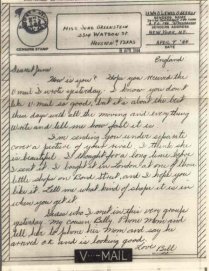 Miss June Greenstein
2314 Watson St.
Houston, Texas
NEW YORK, N.Y.
England
Dearest June
How is you? Hope you received the
V mail I wrote yesterday. I know you don't
like V mail so good, but it's about the best
they can do with all the moving and everything
Write and tell me how fast it is
I'm sending you under separate
cover a picture of your rival. I think she
is beautiful. I thought for a long time before
I sent it. I bought it in London at one of the
little shops on Bond Street, and I hope you
like it. Tell me what kind of shape it is in
when you get it.
I was in this very groups
yesterday. My cousin, Billy. Phone Mom and
tell her to phone his Mom and say he
arrived ok and is looking good.
Love Bill
V···-MAIL